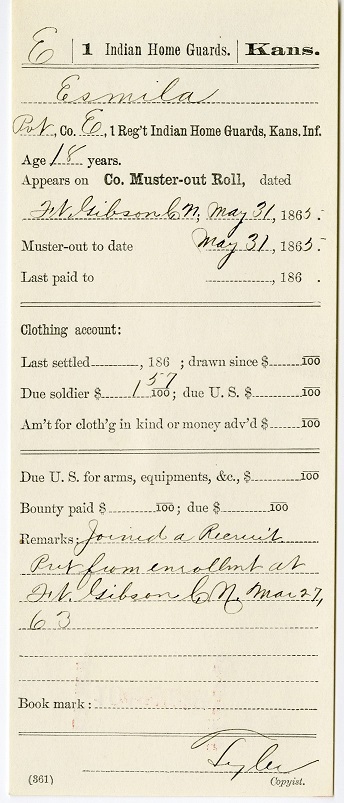 E | 1 Indian Home Guards. | Kans.
Esmila
Pvt, Co. E, 1 Reg't Indian Home Guards, Kans. Inf.
Age 18 years.
Appears on Co. Muster-out Roll, dated
Ft. Gibson C N, May 31, 1865.
Muster-out to date May 31, 1865.
Last paid to , 186 .
Clothing account:
Last settled , 186 ; drawn since $ 100
Due soldier $ 1 57/100; due U. S. $ 100
Am't for cloth'g in kind or money adv'd $ 100
Due U. S. for arms, equipments, &c., $ 100
Bounty paid $ 100; due $ 100
Remarks: Joined a Recruit
from enrollmt at
Ft. Gibson C N. Mar 27,
63
Book mark:
Tyler
(361) Copyist.